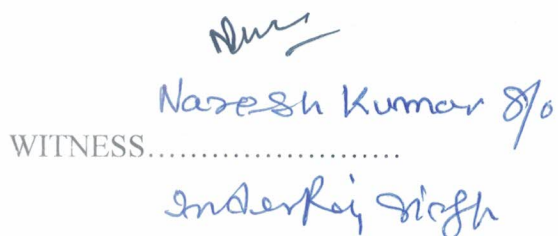 Naresh Kumar S/o
WITNESS.........................
InderRaj Singh